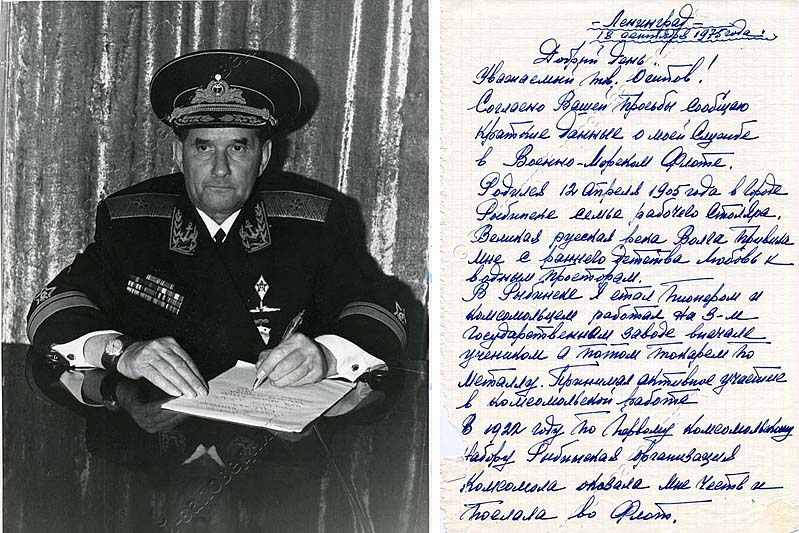 - Ленинград -
18 сентября 1975 года.
Добрый день!
Уважаемый тов. Осипов!
Согласно Вашей просьбы сообщаю
краткие данные о моей службе
в Военно-Морском Флоте.
Родился 12 апреля 1905 года в городе
Рыбинске семье рабочего столяра.
Великая русская река Волга привила
мне с раннего детства любовь к
водным просторам.
В Рыбинске я стал пионером и
комсомольцем работал на 3-м
государственном заводе вначале
учеником а потом токарем по
металлу. Принимал активное участие
в комсомольской работе
В 1922 году по первому комсомольскому
набору Рыбинская организация
комсомола оказала мне честь и
послала во Флот.